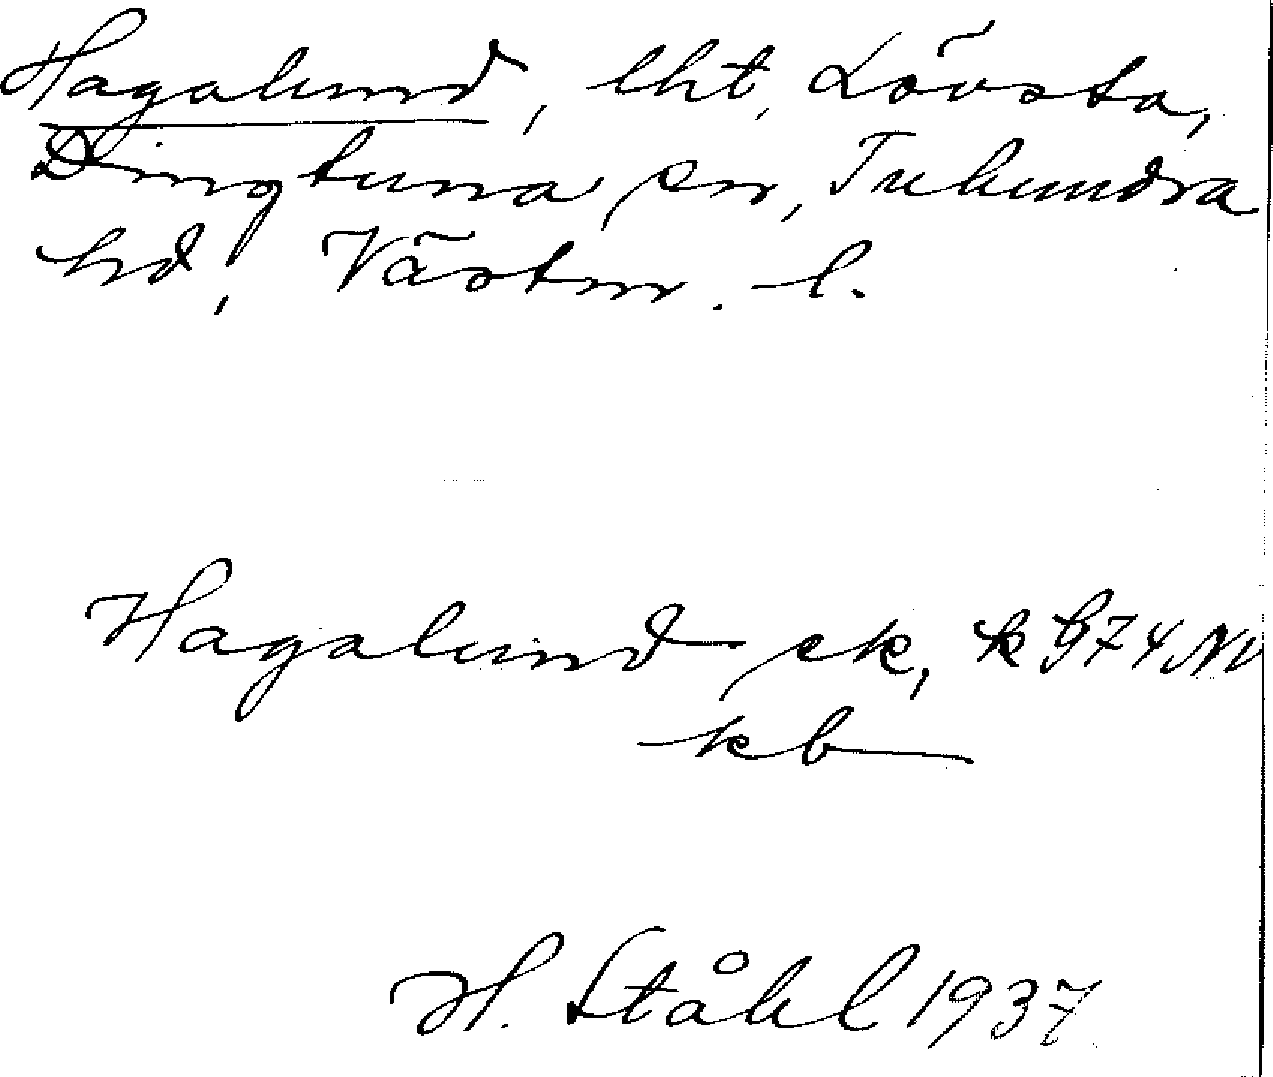 Hagalund, lht, Lövsta,
Dingtuna sn, Tuhundra
hd, Västm. l.
Hagalund ek, k 974 NV
kb
H. Ståhl 1937